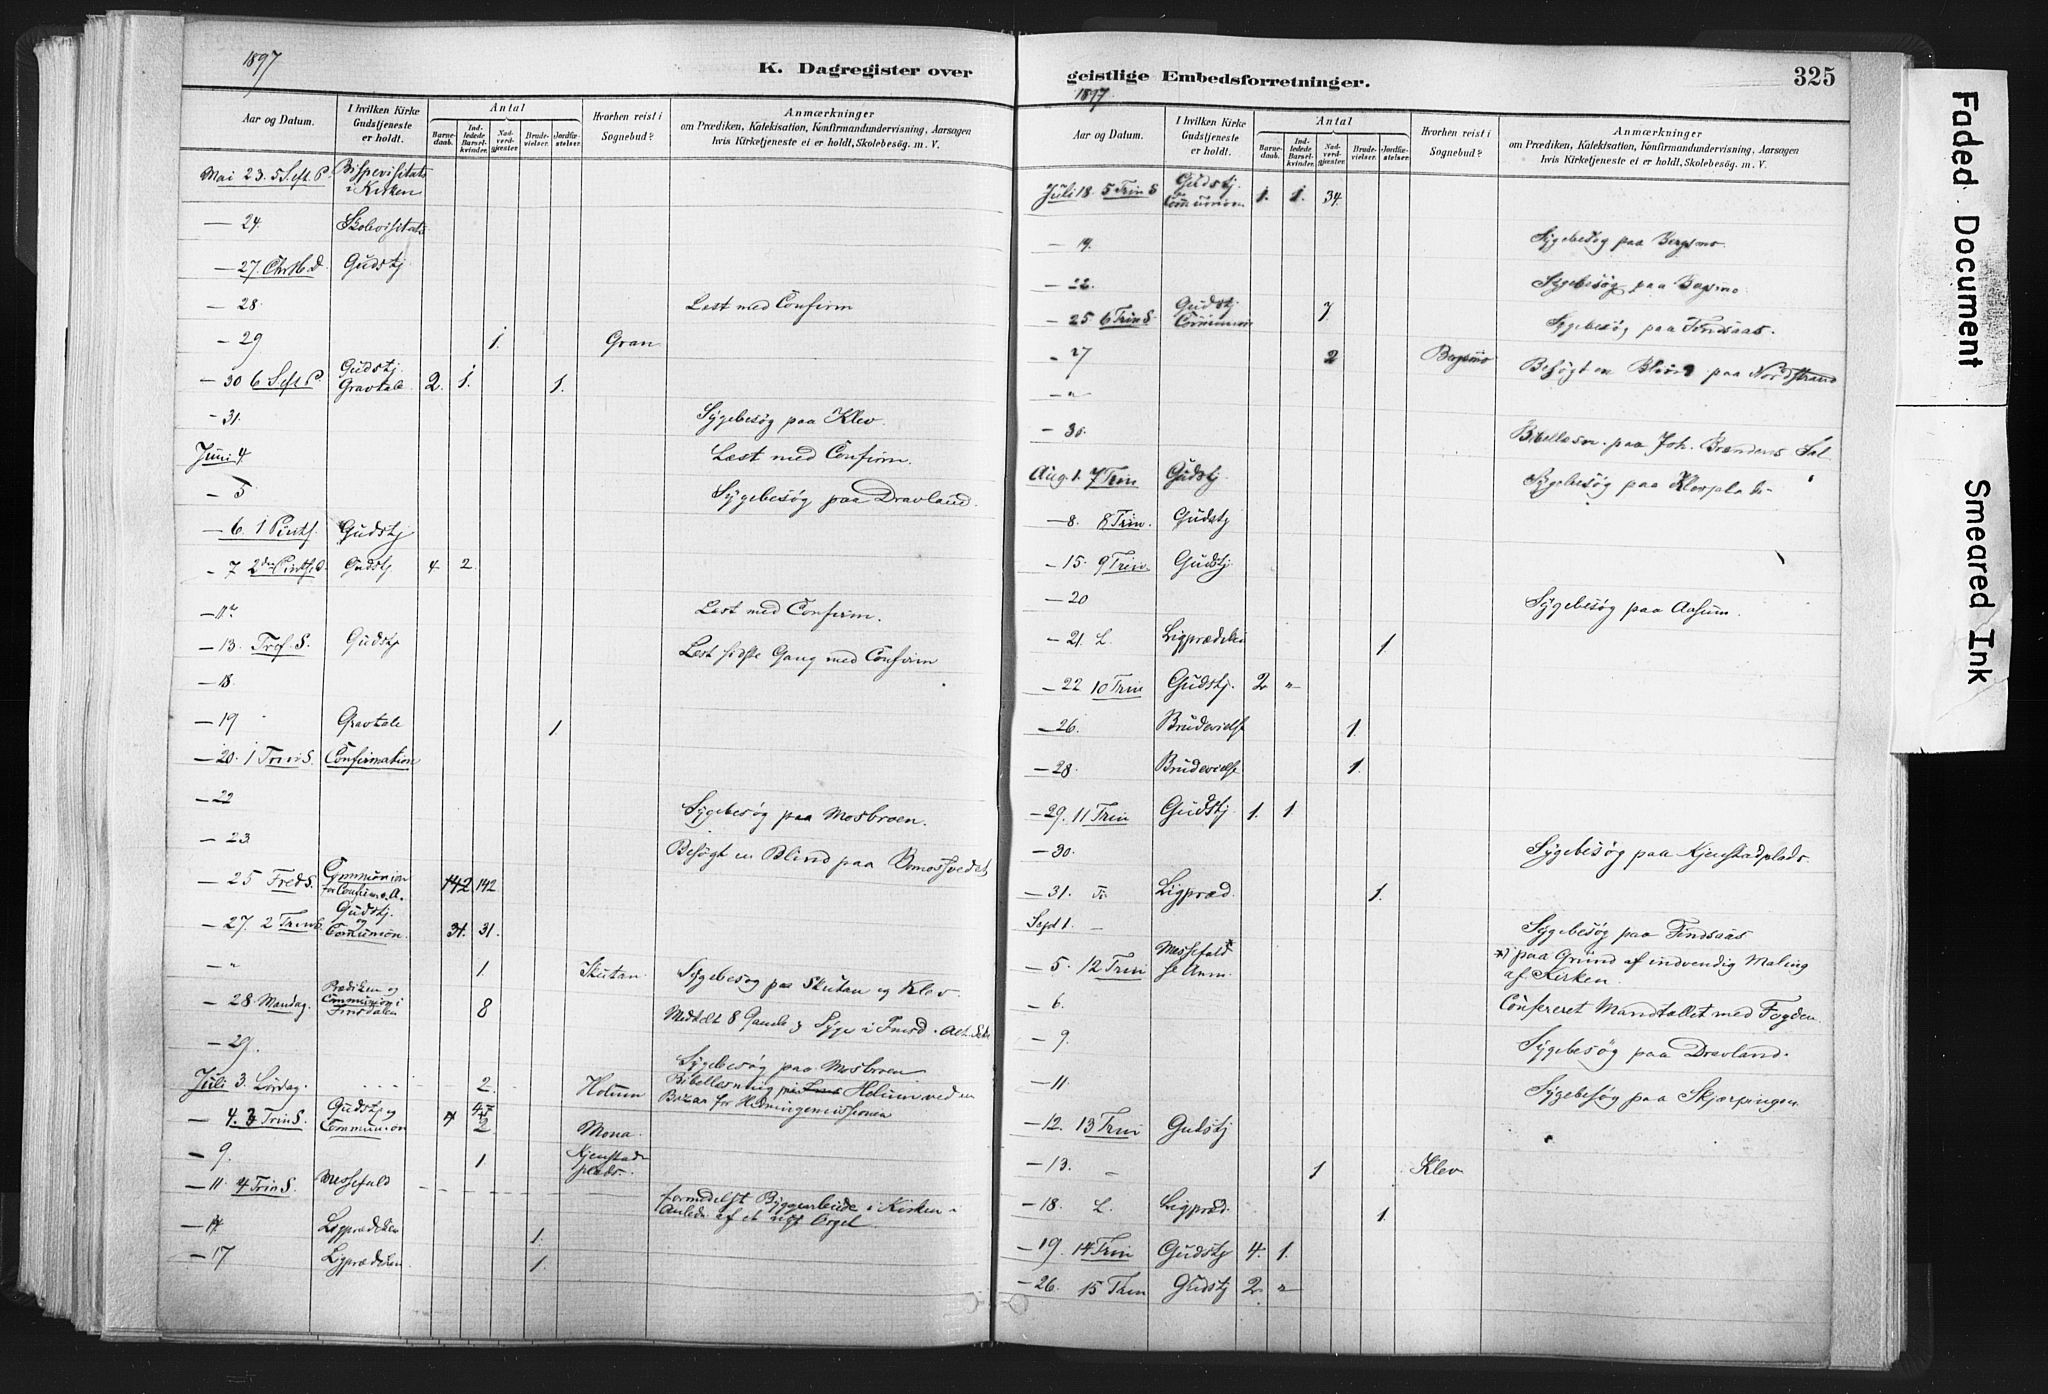 1897
K. Dagregister over
Aar og Datum.
I hvilken Kirke Gudstjeneste er holdt.
Antal
Barnedaab.
Indledede Barselkvinder.
Nadverdgjester.
Brudevielser.
Jordfæstelser.
Hvorhen reist i Sognebud?
Anmærkninger
om Prædiken, Katekisation, Konfirmandundervisning, Aarsagen
hvis Kirketjeneste ei er holdt, Skolebesøg. m. V.
Mai 23. 5 S. eft. P. Bispevisitats i Kirken
— 24. Skolevisitats
— 27. Chr. H. D. Gudstj
— 28. Lest med Confirm
— 29 1. Gran
— 30 6 S. eft P. Gudstj. Gravtale 2. 1. 1.
— 31. Sygebesøg paa Klev.
Juni 4 Læst med Confirm.
— 5 Sygebesøg paa Dravland.
— 6. 1 Pintsd. Gudstj
— 7 2den Pintsed. Gudstj 4 2.
— 11. Lest med Confirm.
— 13. Tref. S. Gudstj Lest sidste Gang med Confirm
— 18.
— 19 Gravtale 1
— 20. 1 Trin S. Confirmation
— 22 Sygebesøg paa Mosbroen.
— 23 Besøgt en Blind paa
— 25 Fred S. Communion for Confirm. o. A. 142 142
— 27. 2 Trin S. Gudstj. og Communion. 31. 31.
— " 1 Skutan. Sygebesøg paa Skutan og Klev.
— 28. Mandag. Prædiken og Communion i Finsdalen 8 Meddelt 8 Gamle og Syge i
— 29. Sygebesøg paa Mosbroen
Juli 3. Lørdag. 2. Holum Bibellesning Holum ved en Bazar for Hedningemissionen
— 4. 3 Trin S. Gudstj og Communion 4 47 + 2 Mona
— 9. 1 Kjenstadplads.
— 11. 4 Trin S. Messefald formedelst Byggearbeide i Kirken i Anledn. af et nyt Orgel.
— 14 Ligprædiken 1.
— 17 Ligprædiken 1.
geistlige Embedsforretninger.
325
1897
Aar og Datum.
I hvilken Kirke Gudstjeneste er holdt.
Antal
Barnedaab.
Indledede Barselkvinder.
Nadverdgjester.
Brudevielser.
Jordfæstelser.
Hvorhen reist i Sognebud?
Anmærkninger
om Prædiken, Katekisation, Konfirmandundervisning, Aarsagen
hvis Kirketjeneste ei er holdt, Skolebesøg. m. V.
Juli 18. 5 Trin S Gudstj. og Communion 1. 1. 34.
— 19. Sygebesøg paa Bergsmo.
— 22. Sygebesøg paa Bergsmo.
— 25 6 Trin S. Gudstj Communion 7 Sygebesøg paa Finsaas.
— 27 2 Bergsmo Besøgt en Blind paa Nordstrand
— "
— 30. Bibellesn. paa Joh. Brændens Sal
Aug. 1. 7 Trin Gudstj. Sygebesøg paa Klevplads
— 8. 8 Trin. Gudstj
— 15. 9 Trin Gudstj.
— 20 Sygebesøg paa Aasum.
— 21. L. Ligprædiken 1
— 22 10 Trin Gudstj. 2 "
— 26. Brudevielse 1.
— 28. Brudevielse 1.
— 29. 11 Trin Gudstj 1. 1
— 30. Sygebesøg paa Kjenstadplads.
— 31. Ligpræd. 1.
Sept 1. — Sygebesøg paa Finsaas
— 5. 12 Trin Messefald* se Anm. *) paa Grund af indvendig Maling af Kirken.
— 6. Confereret Mandtallet med Fogden.
— 9. Sygebesøg paa Dravland.
— 11. Sygebesøg paa Skjærpingen
— 12. 13 Trin Gudstj
— 13. — 1 Klev
— 18. L. Ligpræd. 1.
— 19 14 Trin Gudstj 4. 1.
— 26. 15 Trin Gudstj 2 "
Faded Document
Smeared Ink